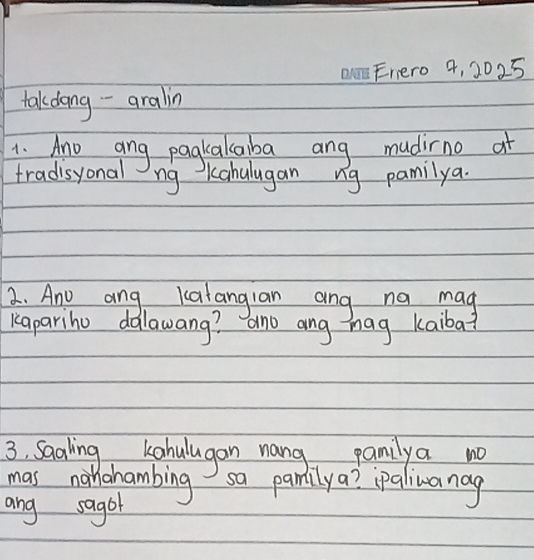 DATE Enero 7, 2025
takdang - aralin
1. Ano ang pagkakaiba ang mudirno at
tradisyonal ng kahulugan ng pamilya.
2. Ano ang katangian ang na mag
kapariho dalawang? ano ang mag kaiba?
3. Saaling kahulugan nang pamilya mo
mas nahahambing sa pamilya? ipaliwanag
ang sagot